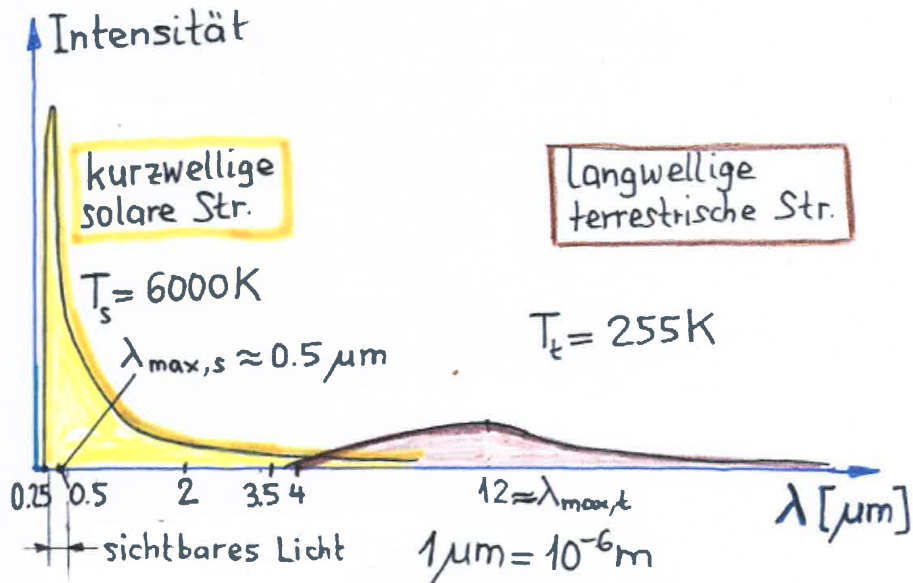 Intensität
kurzwellige
solare Str.
langwellige
terrestrische Str.
Tₛ = 6000K
Tₜ = 255K
λmax,s ≈ 0.5 μm
0.25 0.5 2 3.5 4 12≈λmax,t
λ [μm]
sichtbares Licht
1μm = 10⁻⁶m